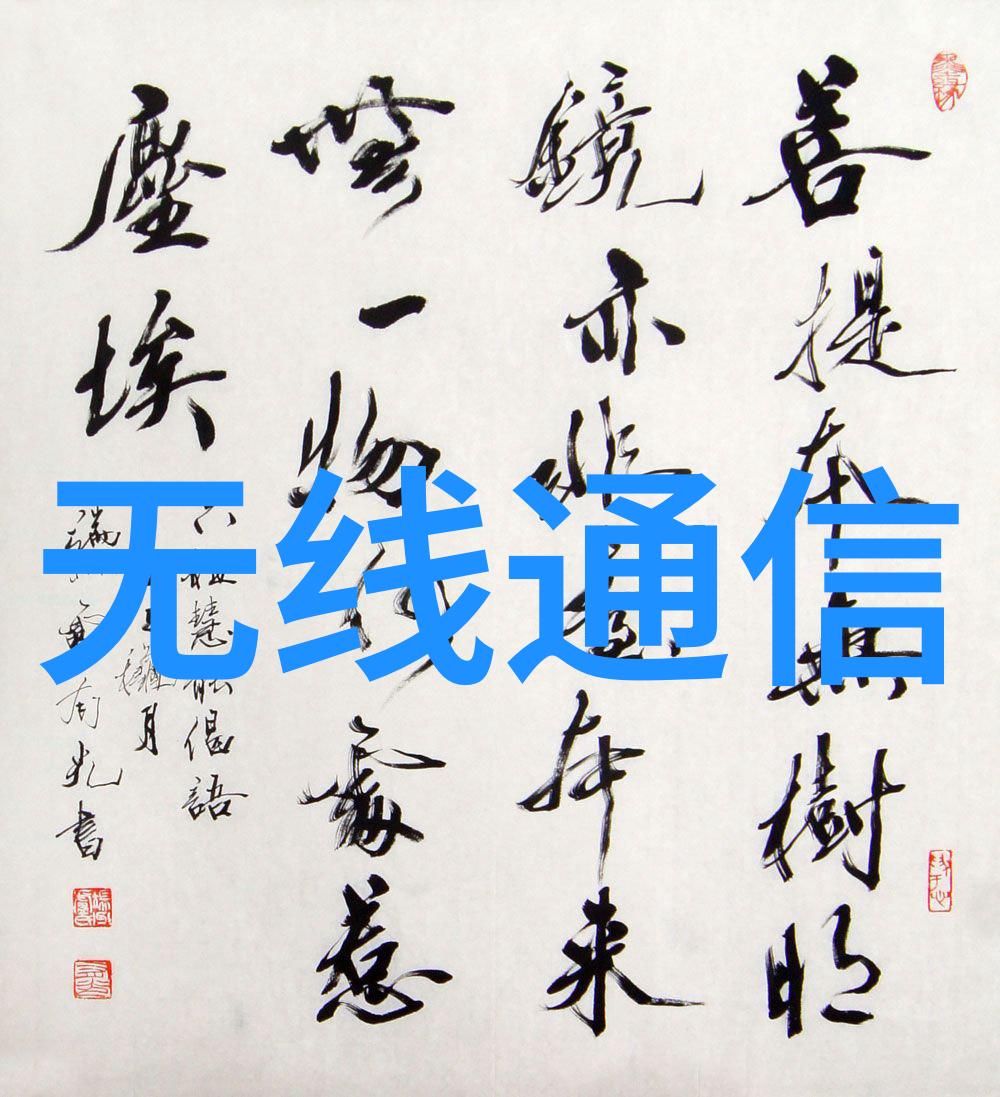 无线通信
菩提本無樹明
鏡亦非臺本来
無一物何處惹
塵埃
六祖慧能偈語
月
書